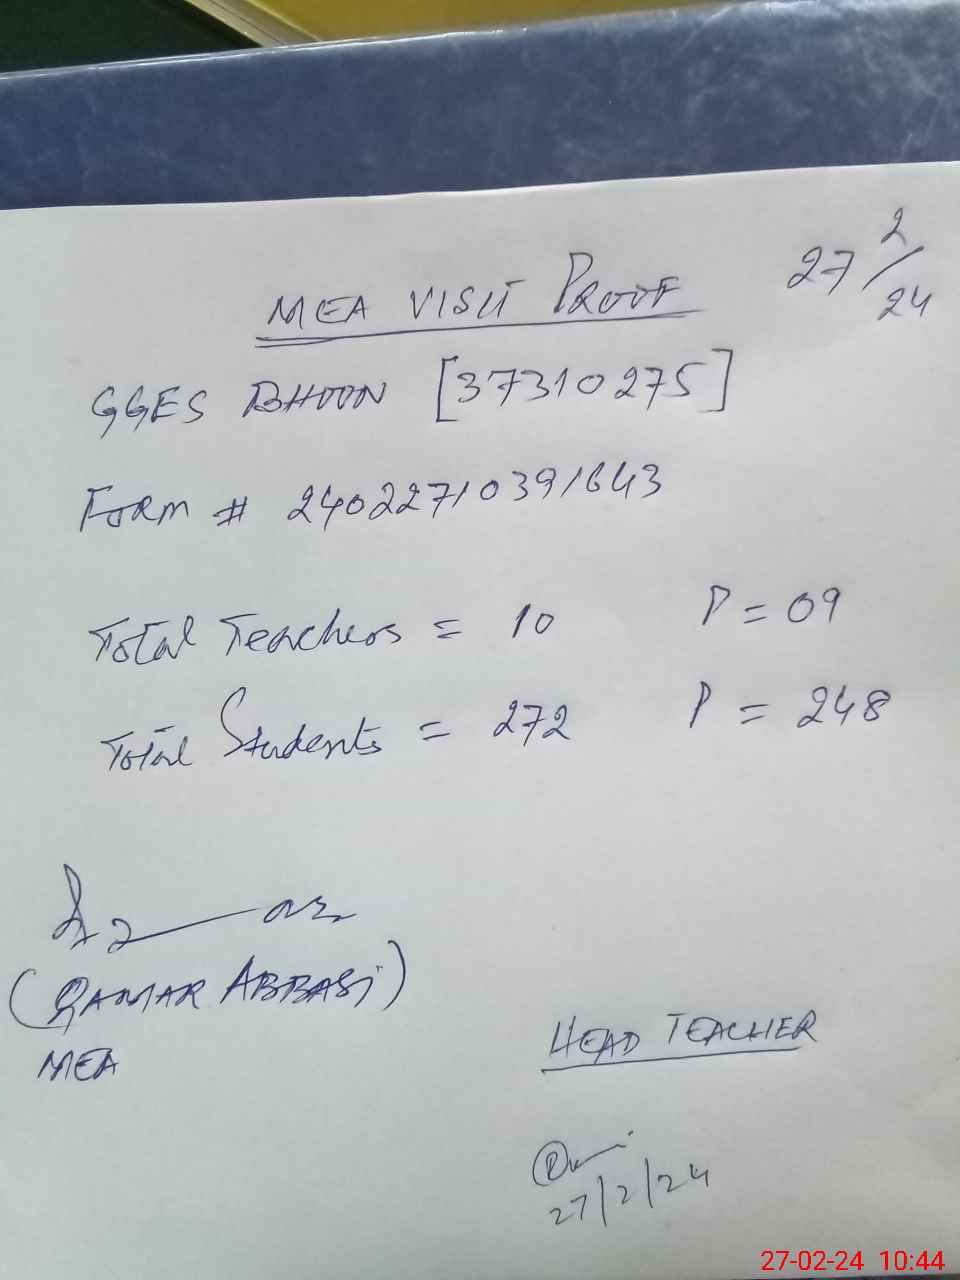 MEA VISIT PROOF
27/2/24
GGES BHOON [37310275]
Form # 24022710391643
Total Teachers = 10 P = 09
Total Students = 272 P = 248
(QAMAR ABBASI)
MEA
HEAD TEACHER
27/2/24
27-02-24 10:44